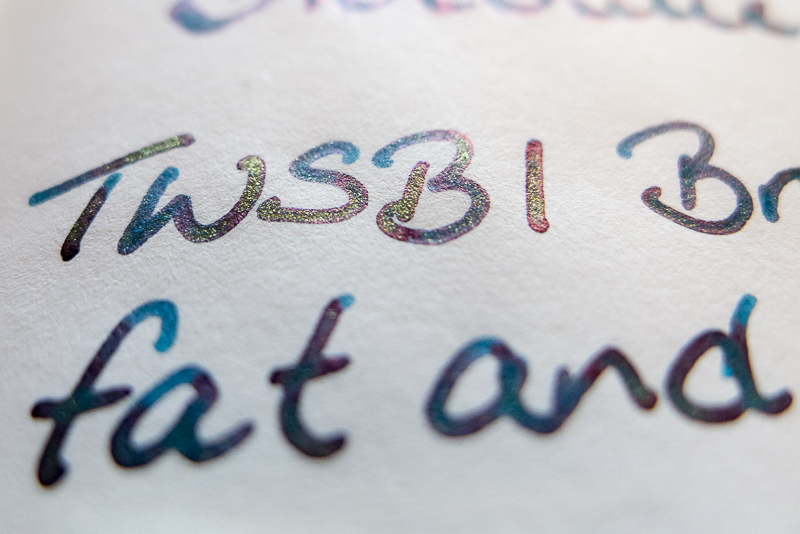 TWSBI Br
fat and